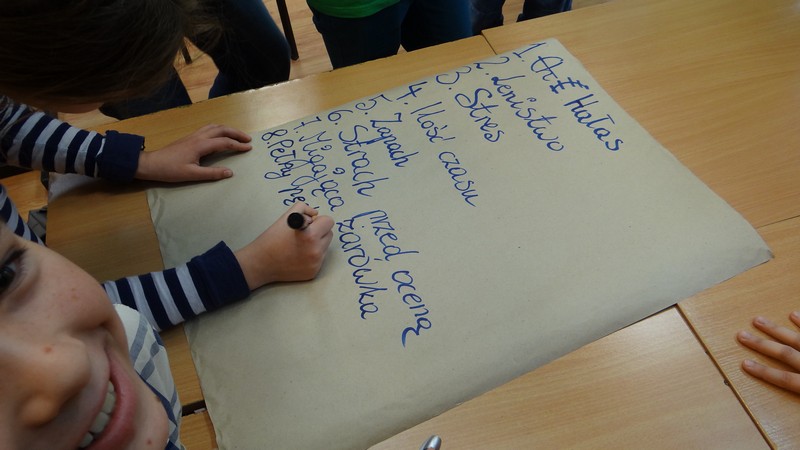 1. Hałas
2. Lenistwo
3. Stres
4. Ilość czasu
5. Zapach
6. Strach przed oceną
7. Migająca żarówka
8. Pełny